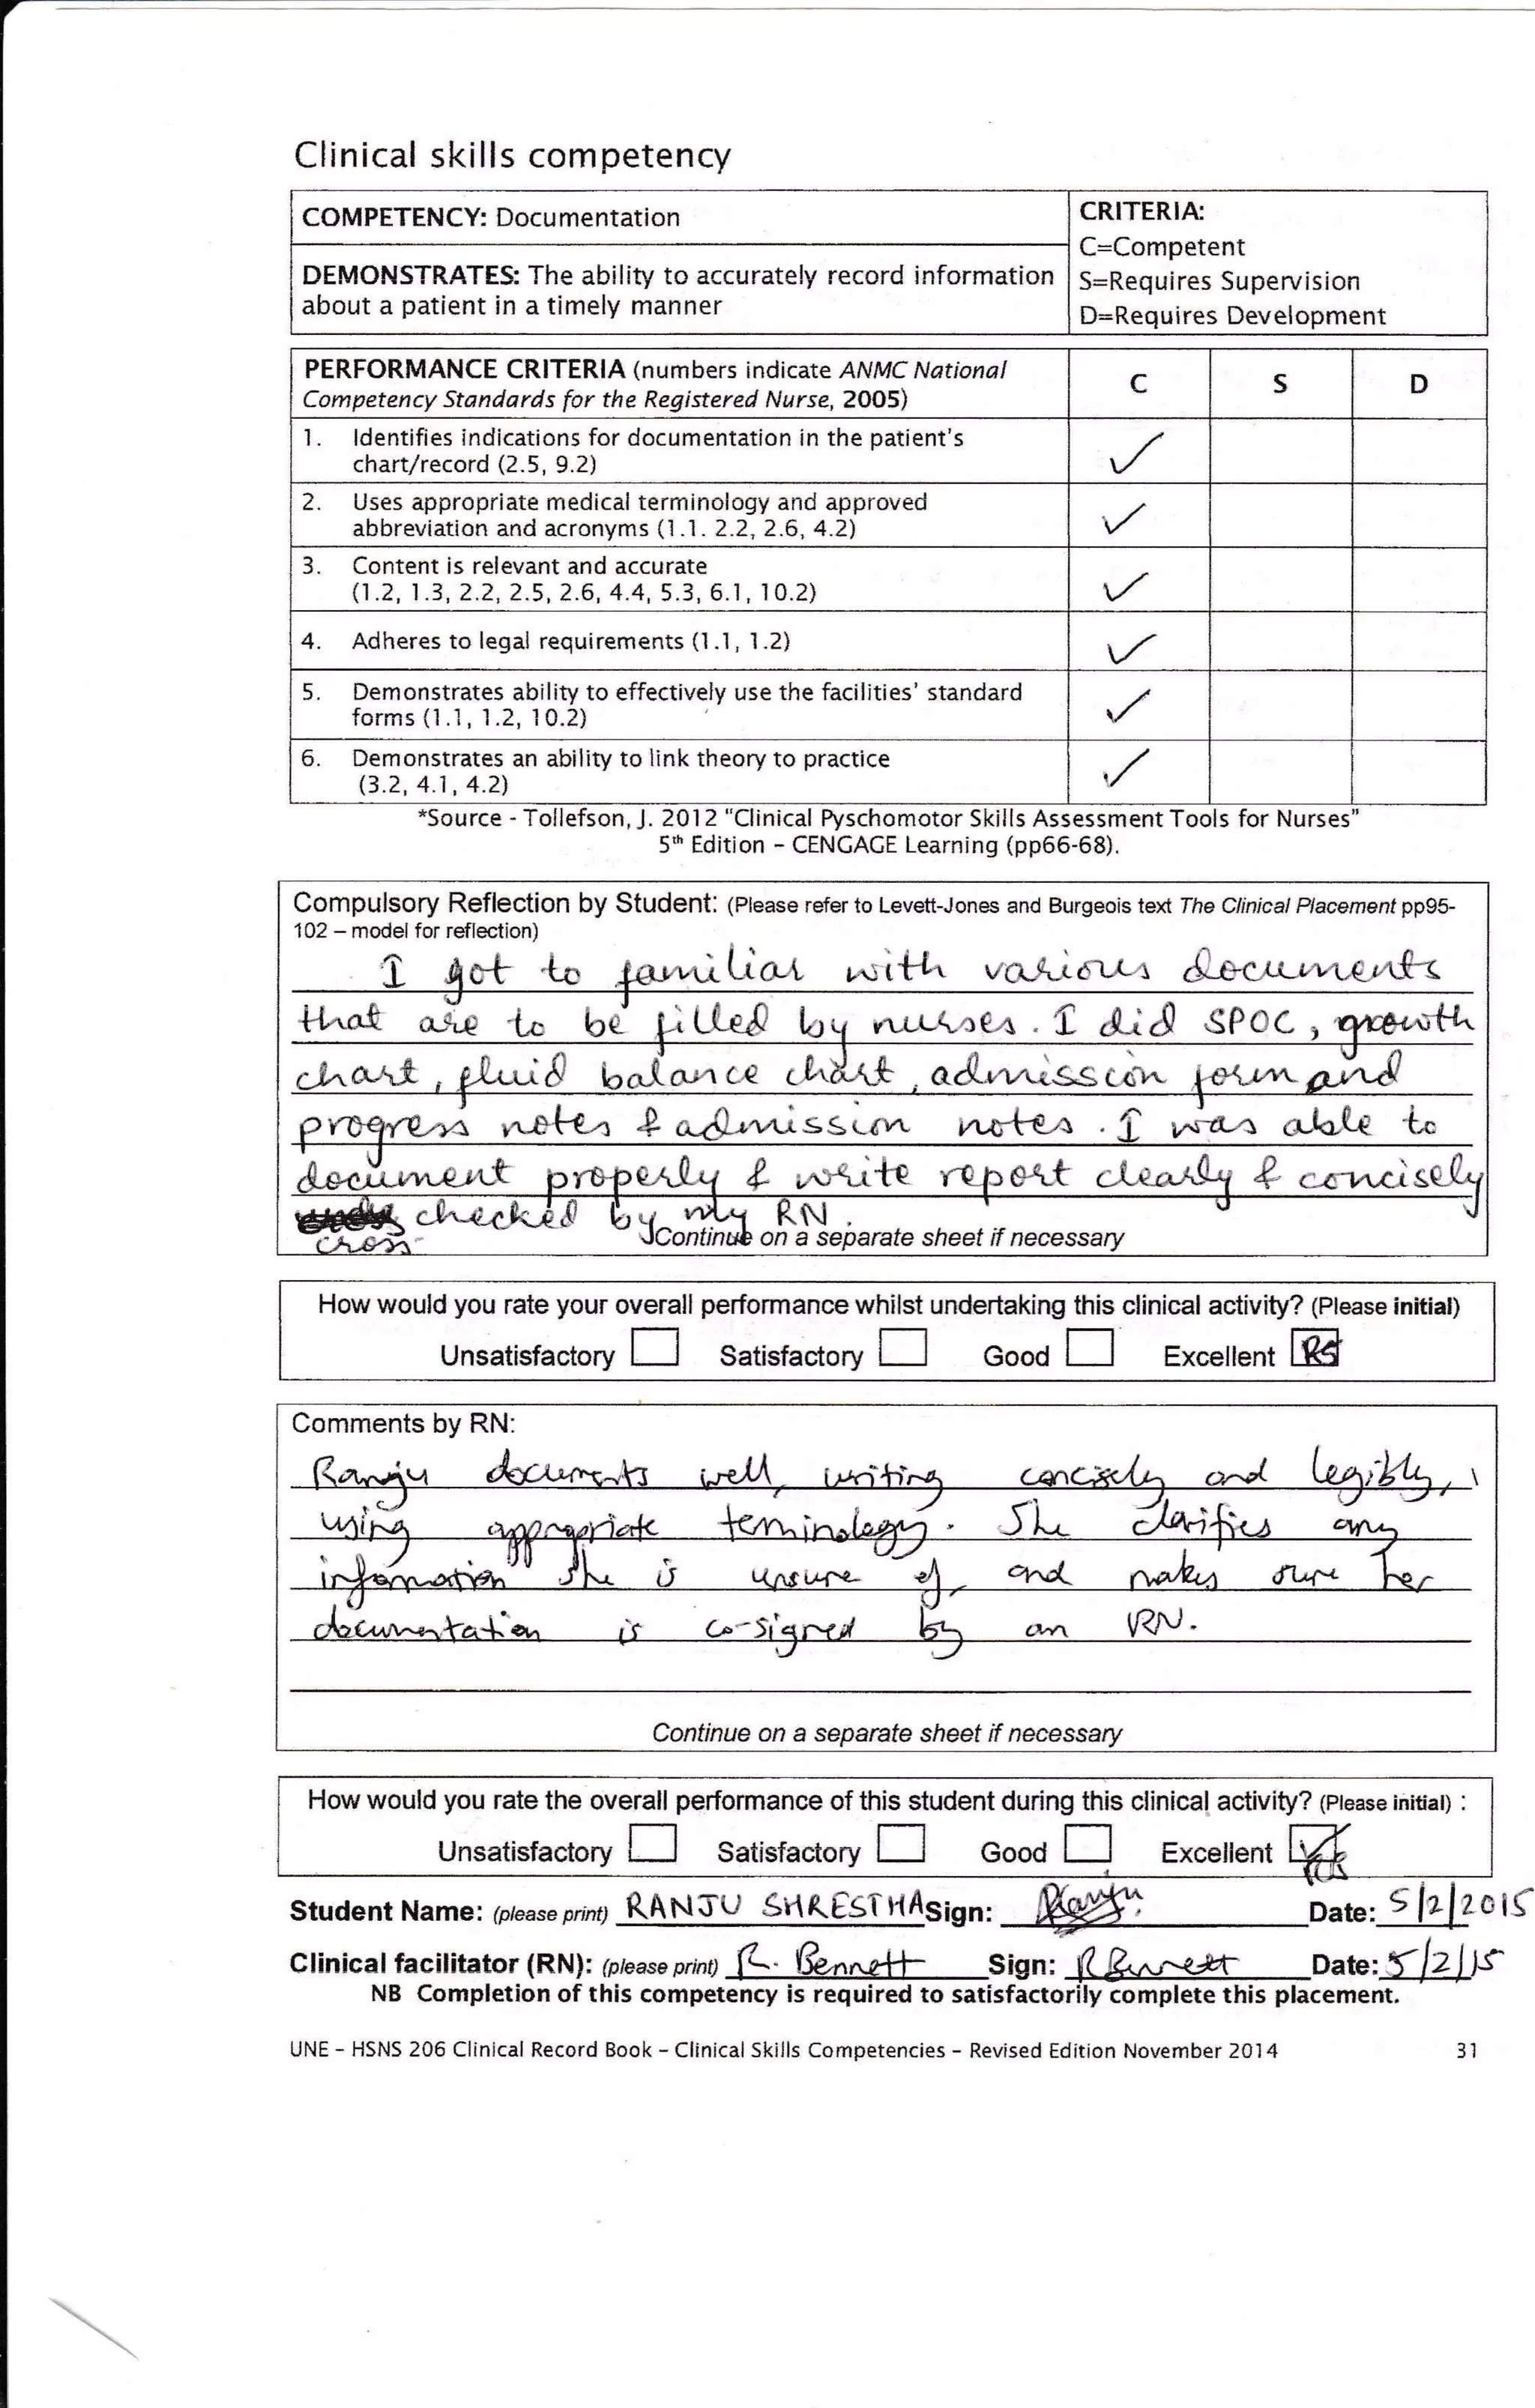 Clinical skills competency
COMPETENCY: Documentation
CRITERIA:
C=Competent
S=Requires Supervision
D=Requires Development
DEMONSTRATES: The ability to accurately record information
about a patient in a timely manner
PERFORMANCE CRITERIA (numbers indicate ANMC National
Competency Standards for the Registered Nurse, 2005)
C S D
1. Identifies indications for documentation in the patient's
chart/record (2.5, 9.2) ✓
2. Uses appropriate medical terminology and approved
abbreviation and acronyms (1.1. 2.2, 2.6, 4.2) ✓
3. Content is relevant and accurate
(1.2, 1.3, 2.2, 2.5, 2.6, 4.4, 5.3, 6.1, 10.2) ✓
4. Adheres to legal requirements (1.1, 1.2) ✓
5. Demonstrates ability to effectively use the facilities' standard
forms (1.1, 1.2, 10.2) ✓
6. Demonstrates an ability to link theory to practice
(3.2, 4.1, 4.2) ✓
*Source - Tollefson, J. 2012 "Clinical Pyschomotor Skills Assessment Tools for Nurses"
5th Edition – CENGAGE Learning (pp66-68).
Compulsory Reflection by Student: (Please refer to Levett-Jones and Burgeois text The Clinical Placement pp95-
102 – model for reflection)
I got to familiar with various documents
that are to be filled by nurses. I did SPOC, growth
chart, fluid balance chart, admission form and
progress notes & admission notes. I was able to
document properly & write report clearly & concisely
checked by my RN.
cross-
Continue on a separate sheet if necessary
How would you rate your overall performance whilst undertaking this clinical activity? (Please initial)
Unsatisfactory Satisfactory Good Excellent RS
Comments by RN:
Ranju documents well, writing concisely and legibly,
using appropriate terminology. She clarifies any
information she is unsure of, and makes sure her
documentation is co-signed by an RN.
Continue on a separate sheet if necessary
How would you rate the overall performance of this student during this clinical activity? (Please initial) :
Unsatisfactory Satisfactory Good Excellent
Student Name: (please print) RANJU SHRESTHA Sign: Ranju Date: 5/2/2015
Clinical facilitator (RN): (please print) R. Bennett Sign: RBennett Date: 5/2/15
NB Completion of this competency is required to satisfactorily complete this placement.
UNE – HSNS 206 Clinical Record Book – Clinical Skills Competencies – Revised Edition November 2014 31